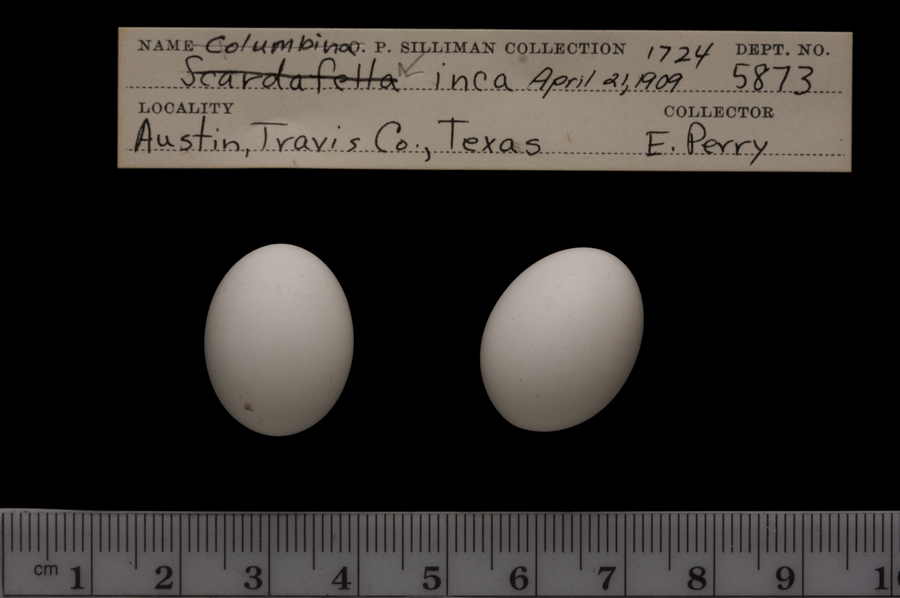 NAME Columbina O. P. SILLIMAN COLLECTION 1724 DEPT. NO.
Scardafella inca April 21, 1909 5873
LOCALITY COLLECTOR
Austin, Travis Co., Texas E. Perry
cm 1 2 3 4 5 6 7 8 9 1